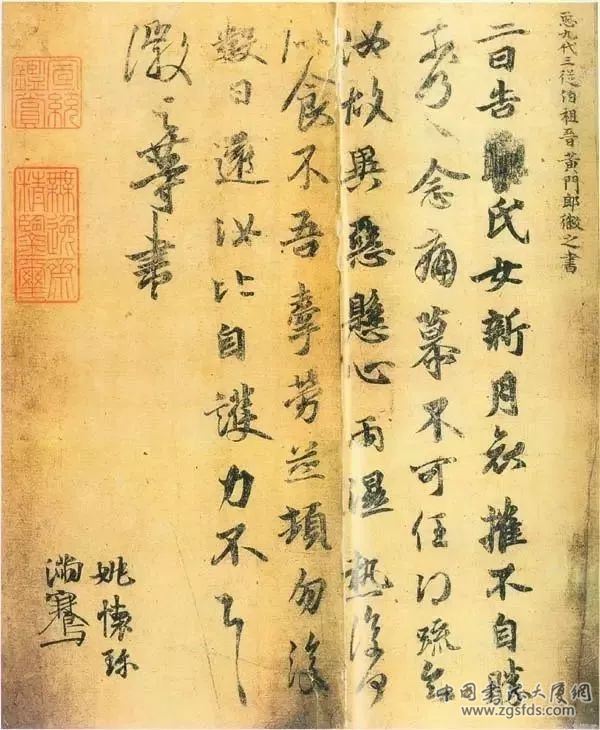 九代三從伯祖晉黃門郎徽之書
二日告氏女新月哀摧不自勝
奈何〻念痛慕不可任得疏知
汝故異惡懸心雨濕熱復何
似食不吾牽勞並頓勿復
數日還汝比自護力不具
徽之等書
姚懷珍
滿騫
宣統鑑賞
無逸齋精鑒璽
中國書法大厦網
www.zgsfds.com